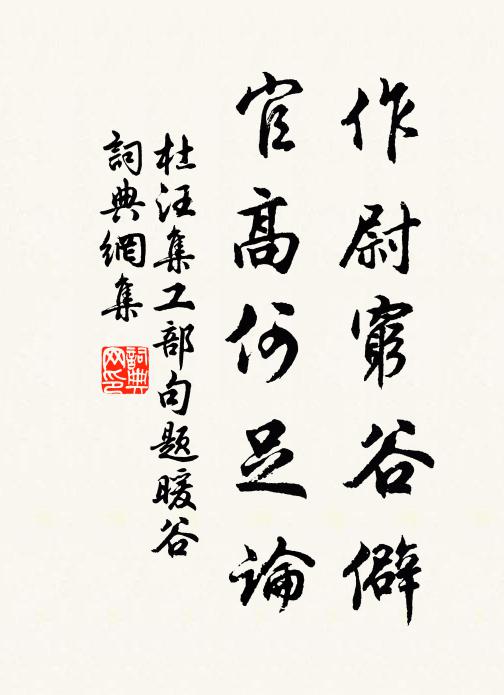 作尉窮谷僻
官高何足論
杜汪集工部句题暖谷
詞典網集
詞典網印